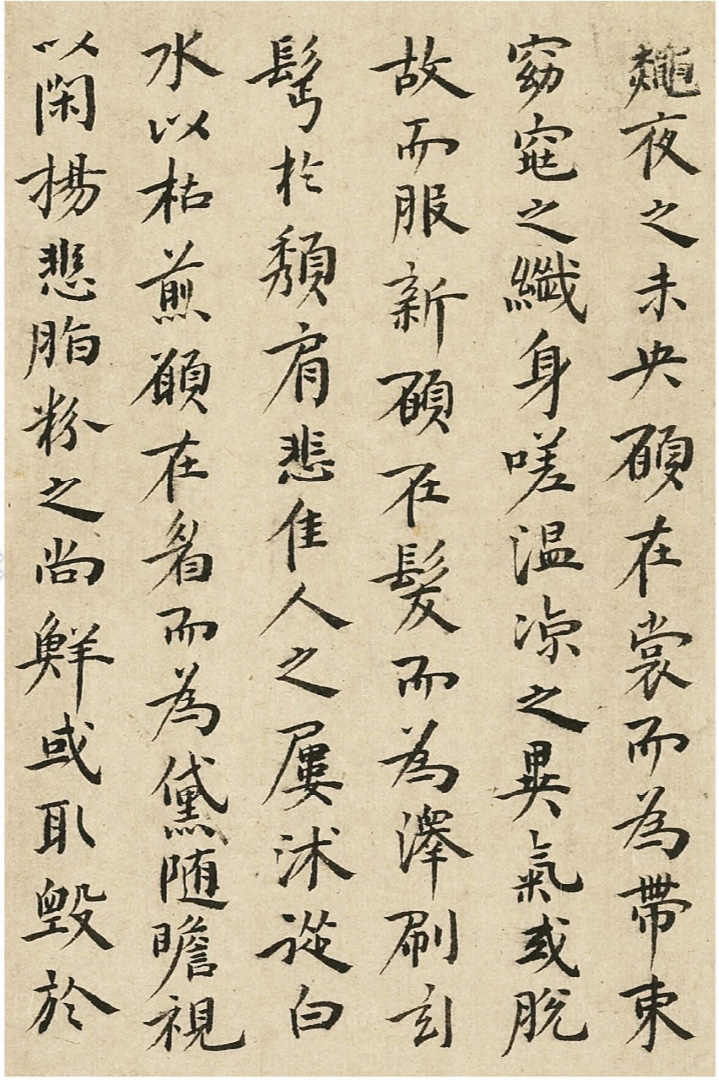 夜之未央願在裳而為帶束
窈窕之纖身嗟温凉之異氣或脫
故而服新願在髮而為澤刷玄
鬢於頹肩悲佳人之屢沐從白
水以枯煎願在眉而為黛随瞻視
以閑揚悲脂粉之尚鮮或取毀於